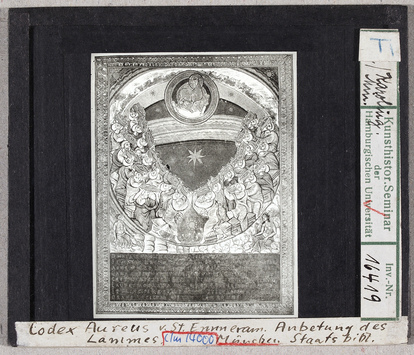 T
Karoling.
Kunsthistor. Seminar
der
Hamburgischen Universität
Inv.-Nr.
16419
Codex Aureus v. St. Emmeram. Anbetung des
Lammes clm 14000 München Staatsbibl.